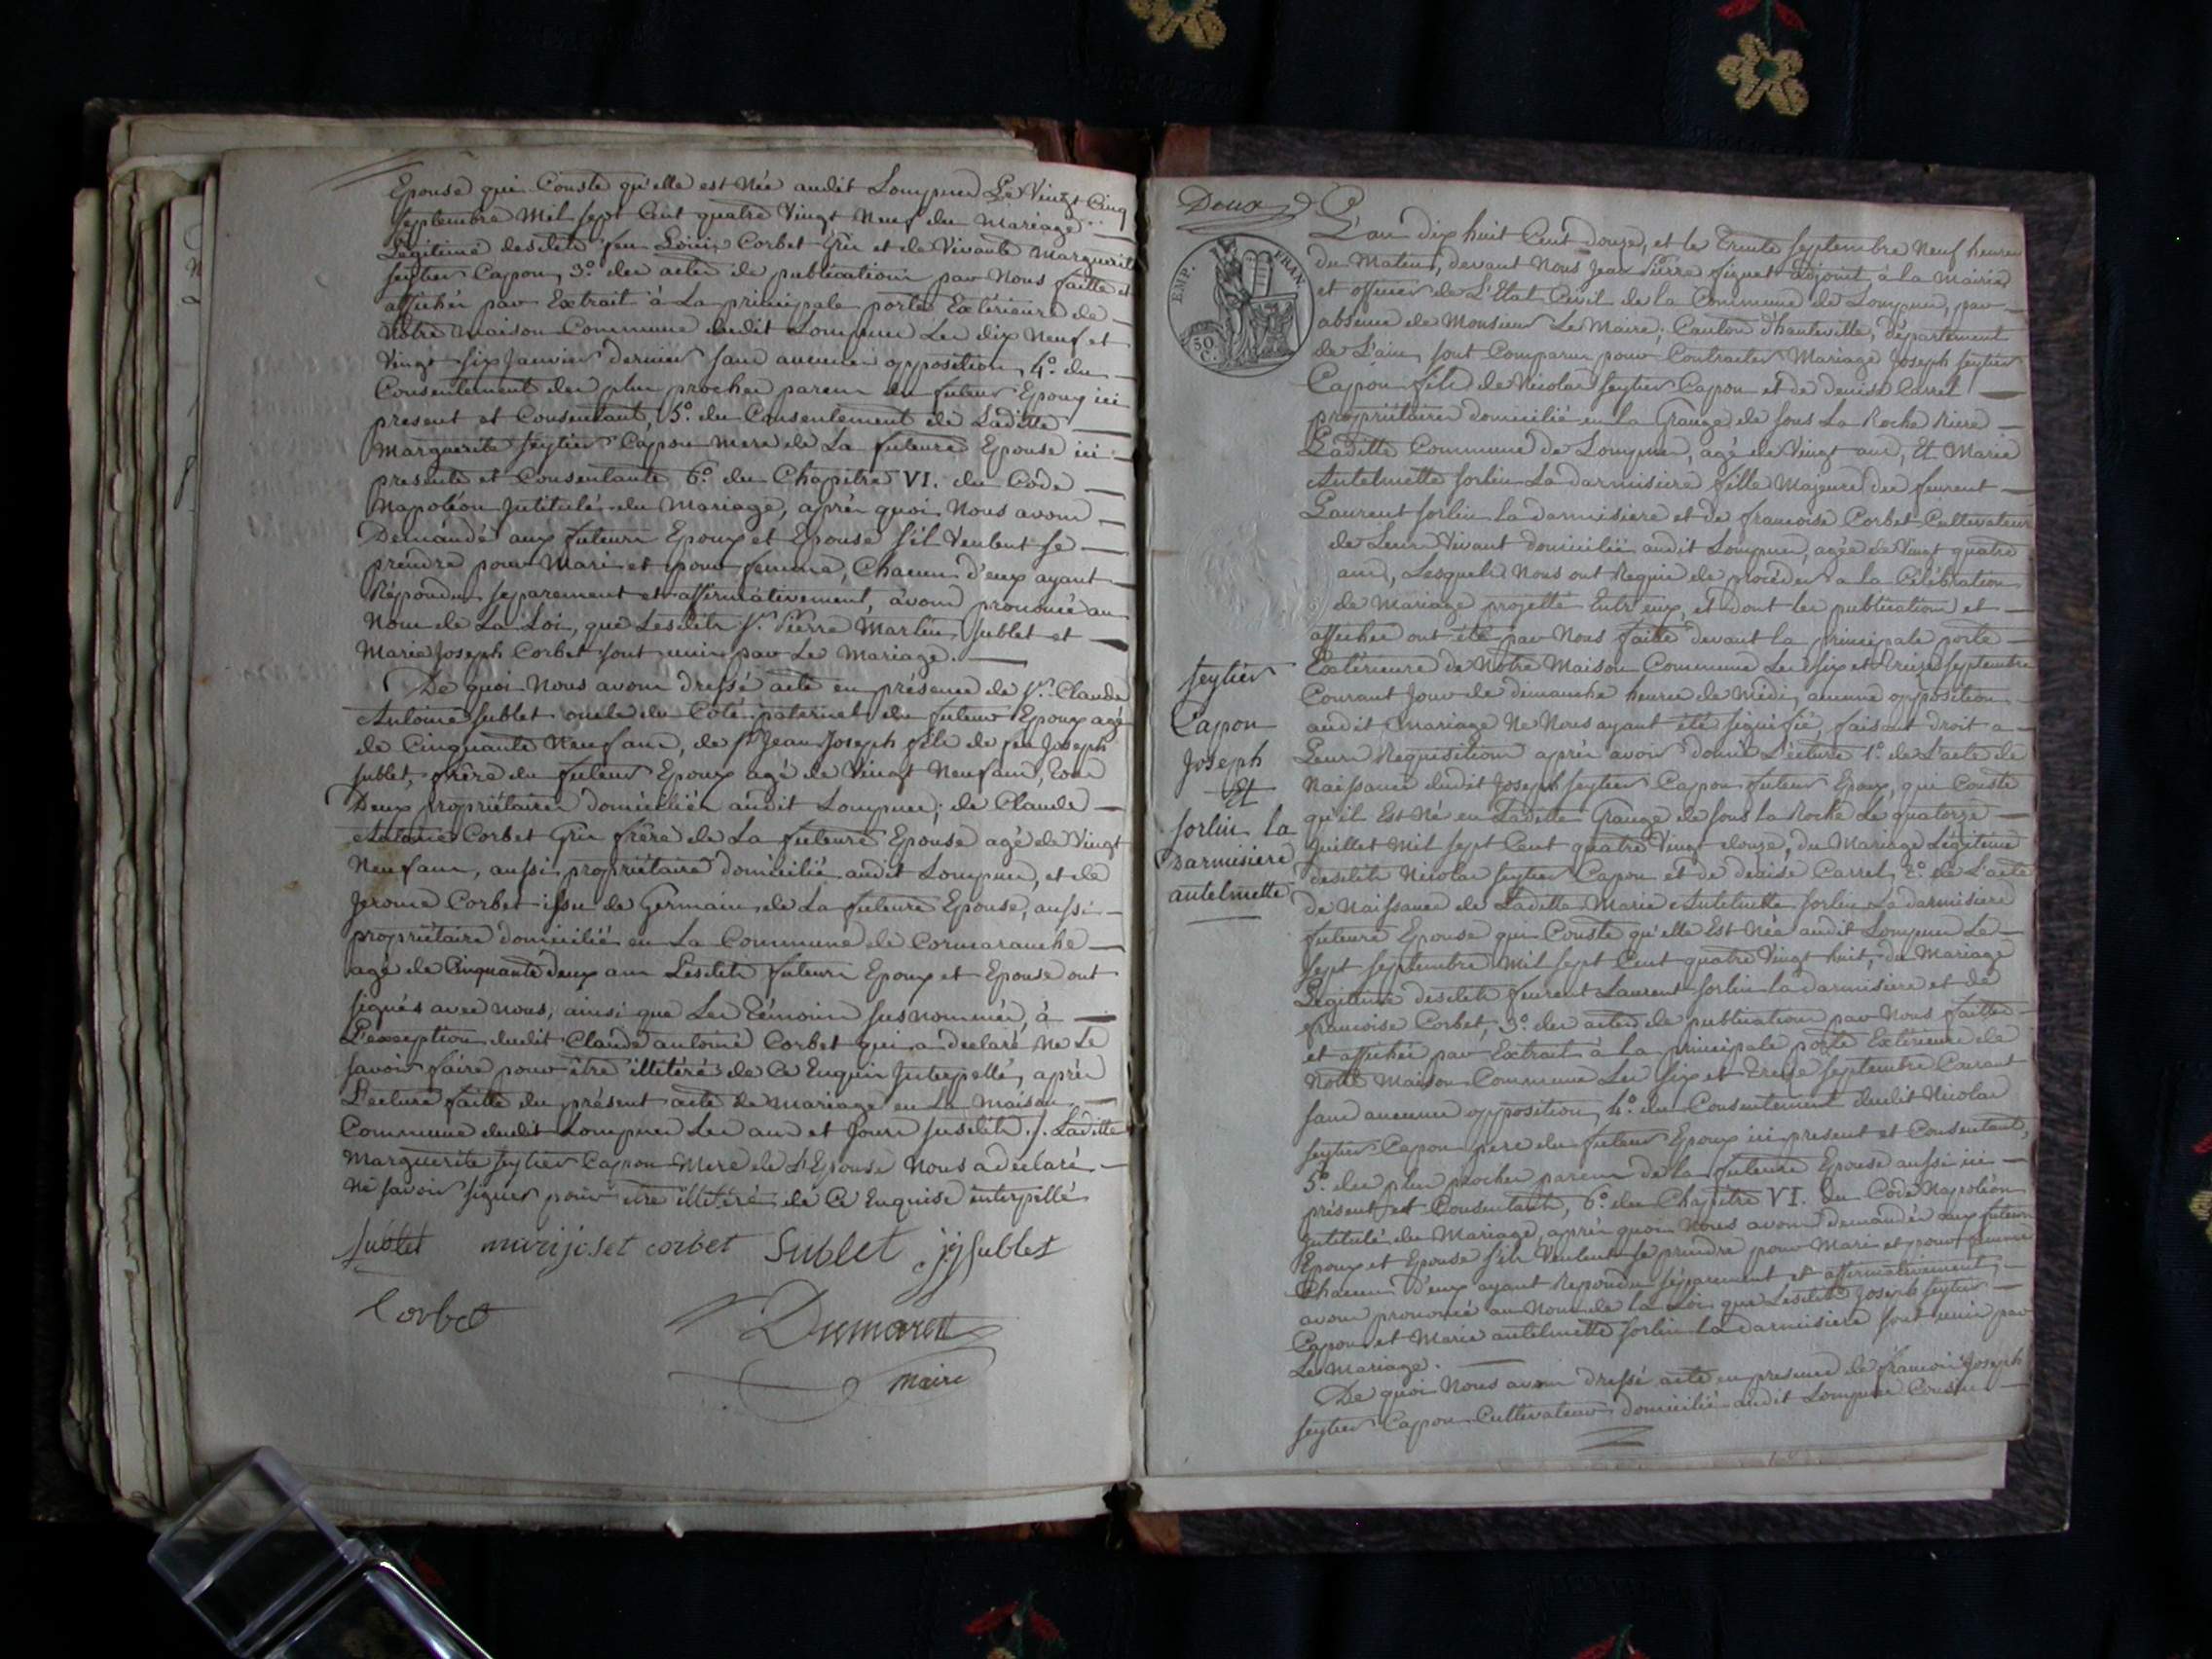 Epouse qui Conste qu'elle est Née audit Lompnes Le Vingt Cinq
septembre Mil sept Cent quatre Vingt Neuf du Mariage
Légitime desdits feu Louis Corbet Gris et de Vivante Marguerite
seytier Capon, 3.º des actes de publications par Nous faitte et
affichés par Extrait à La principale porte Extérieure de
Notre maison Commune dudit Lompnes Les dix Neuf et
Vingt six Janvier dernier sans aucune opposition, 4.º du
Consentement des plus proches parens du futur Epoux ici
present et Consentant, 5.º du Consentement de Laditte
Marguerite seytier Capon mere de La future Epouse ici
presente et Consentante 6.º du Chapitre VI. du Code
Napoléon Intitulé du Mariage, après quoi Nous avons
Demandé aux futurs Epoux et Epouse s'il Veulent se
prendre pour Mari et pour femme, Chacun d'eux ayant
Répondu separement et affirmativement, avons prononcé au
Nom de La Loi, que Lesdits s.r Pierre Martin Sublet et
Marie Joseph Corbet sont unis par Le Mariage.
De quoi Nous avons dressé acte en présence de s.r Claude
Antoine Sublet oncle du Coté paternel du futur Epoux agé
de Cinquante Neuf ans, de s.r Jean Joseph fils de feu Joseph
Sublet, frère du futur Epoux agé de Vingt Neuf ans, tous
Deux propriétaires domiciliés audit Lompnes; de Claude
Antoine Corbet Gris frère de La future Epouse agé de Vingt
Neuf ans, aussi propriétaire domicilié audit Lompnes, et de
Jerome Corbet issu de Germain de La future Epouse, aussi
propriétaire domicilié en La Commune de Cormaranche
agé de Cinquante deux ans Lesdits futurs Epoux et Epouse ont
signés avec nous, ainsi que Les témoins susnommés, à
L'exception dudit Claude antoine Corbet qui a declaré Ne Le
savoir faire pour être illitéré de Ce Enquis Interpellé, après
Lecture faitte du présent acte de mariage en La maison
Commune dudit Lompnes Les an et Jour susdits ./. Laditte
Marguerite seytier Capon Mere de L'Epouse Nous a declaré
Ne savoir signer pour être illitéré de Ce Enquise interpellé
Sublet marijoset corbet Sublet jjSublet
Corbet
Dumarest
Maire
Deux
EMP. FRAN.
50 C.
L'an dix huit Cent douze, et le Trente septembre Neuf heures
du Matin, devant Nous Jean Pierre figuet adjoint à la Mairie
et officier de L'Etat Civil de la Commune de Lompnes, par
absence de Monsieur Le Maire, Canton d'hauteville, département
de L'ain, sont Comparus pour Contracter Mariage Joseph seytier
Capon fils de Nicolas seytier Capon et de denise Carrel
propriétaires domicilié en La Grange de sous La Roche Riere
Laditte Commune de Lompnes, agé de Vingt ans, Et Marie
Antelmette sorlin La darmisiere fille Majeure des feurent
Laurent sorlin la darmisiere et de francoise Corbet Cultivateurs
de Leur Vivant domiciliés audit Lompnes, agée de Vingt quatre
ans, Lesquels Nous ont Requis de procéder a la Célébration
de Mariage projetté Entr'eux, et dont les publications et
affiches ont été par Nous faitte devant la principale porte
Extérieure de Notre Maison Commune Les six et treize septembre
Courant Jour de dimanche heure de Médi, aucune opposition
audit Mariage Ne Nous ayant été signifié, faisant droit a
Leur Requisition après avoir donné Lecture 1.º de L'acte de
Naissance dudit Joseph seytier Capon futur Epoux, qui Conste
qu'il Est Né en Laditte Grange de sous la Roche Le quatorze
Juillet Mil sept Cent quatre Vingt douze, du Mariage Légitime
desdits Nicolas seytier Capon et de denise Carrel, 2.º de L'acte
de Naissance de Laditte Marie Antelmette sorlin La darmisiere
future Epouse qui Conste qu'elle Est Née audit Lompnes Le
sept septembre Mil sept Cent quatre Vingt huit, du Mariage
Légitime desdits feurent Laurent sorlin la darmisiere et de
francoise Corbet, 3.º des actes de publication par Nous faitte
et affichés par Extrait à la principale porte Extérieure de
Notre Maison Commune Les six et treize septembre Courant
sans aucune opposition, 4.º du Consentement dudit Nicolas
seytier Capon pere du futur Epoux ici present et Consentant,
5.º des plus proches parens de la future Epouse aussi ici
présent et Consentants, 6.º du Chapitre VI. du Code Napoléon
intitulé du Mariage, après quoi Nous avons demandés aux futurs
Epoux et Epouse s'ils Veulent se prendre pour Mari et pour femme
Chacun d'eux ayant Repondu séparement et affirmativement,
avons prononcé au Nom de la Loi que Lesdits Joseph seytier
Capon et Marie antelmette sorlin la darmisiere sont unis par
Le Mariage.
De quoi Nous avons dressé acte en presence de francois Joseph
seytier Capon Cultivateur domicilié audit Lompnes Cousin
seytier
Capon
Joseph
Et
sorlin la
Darmisiere
antelmette